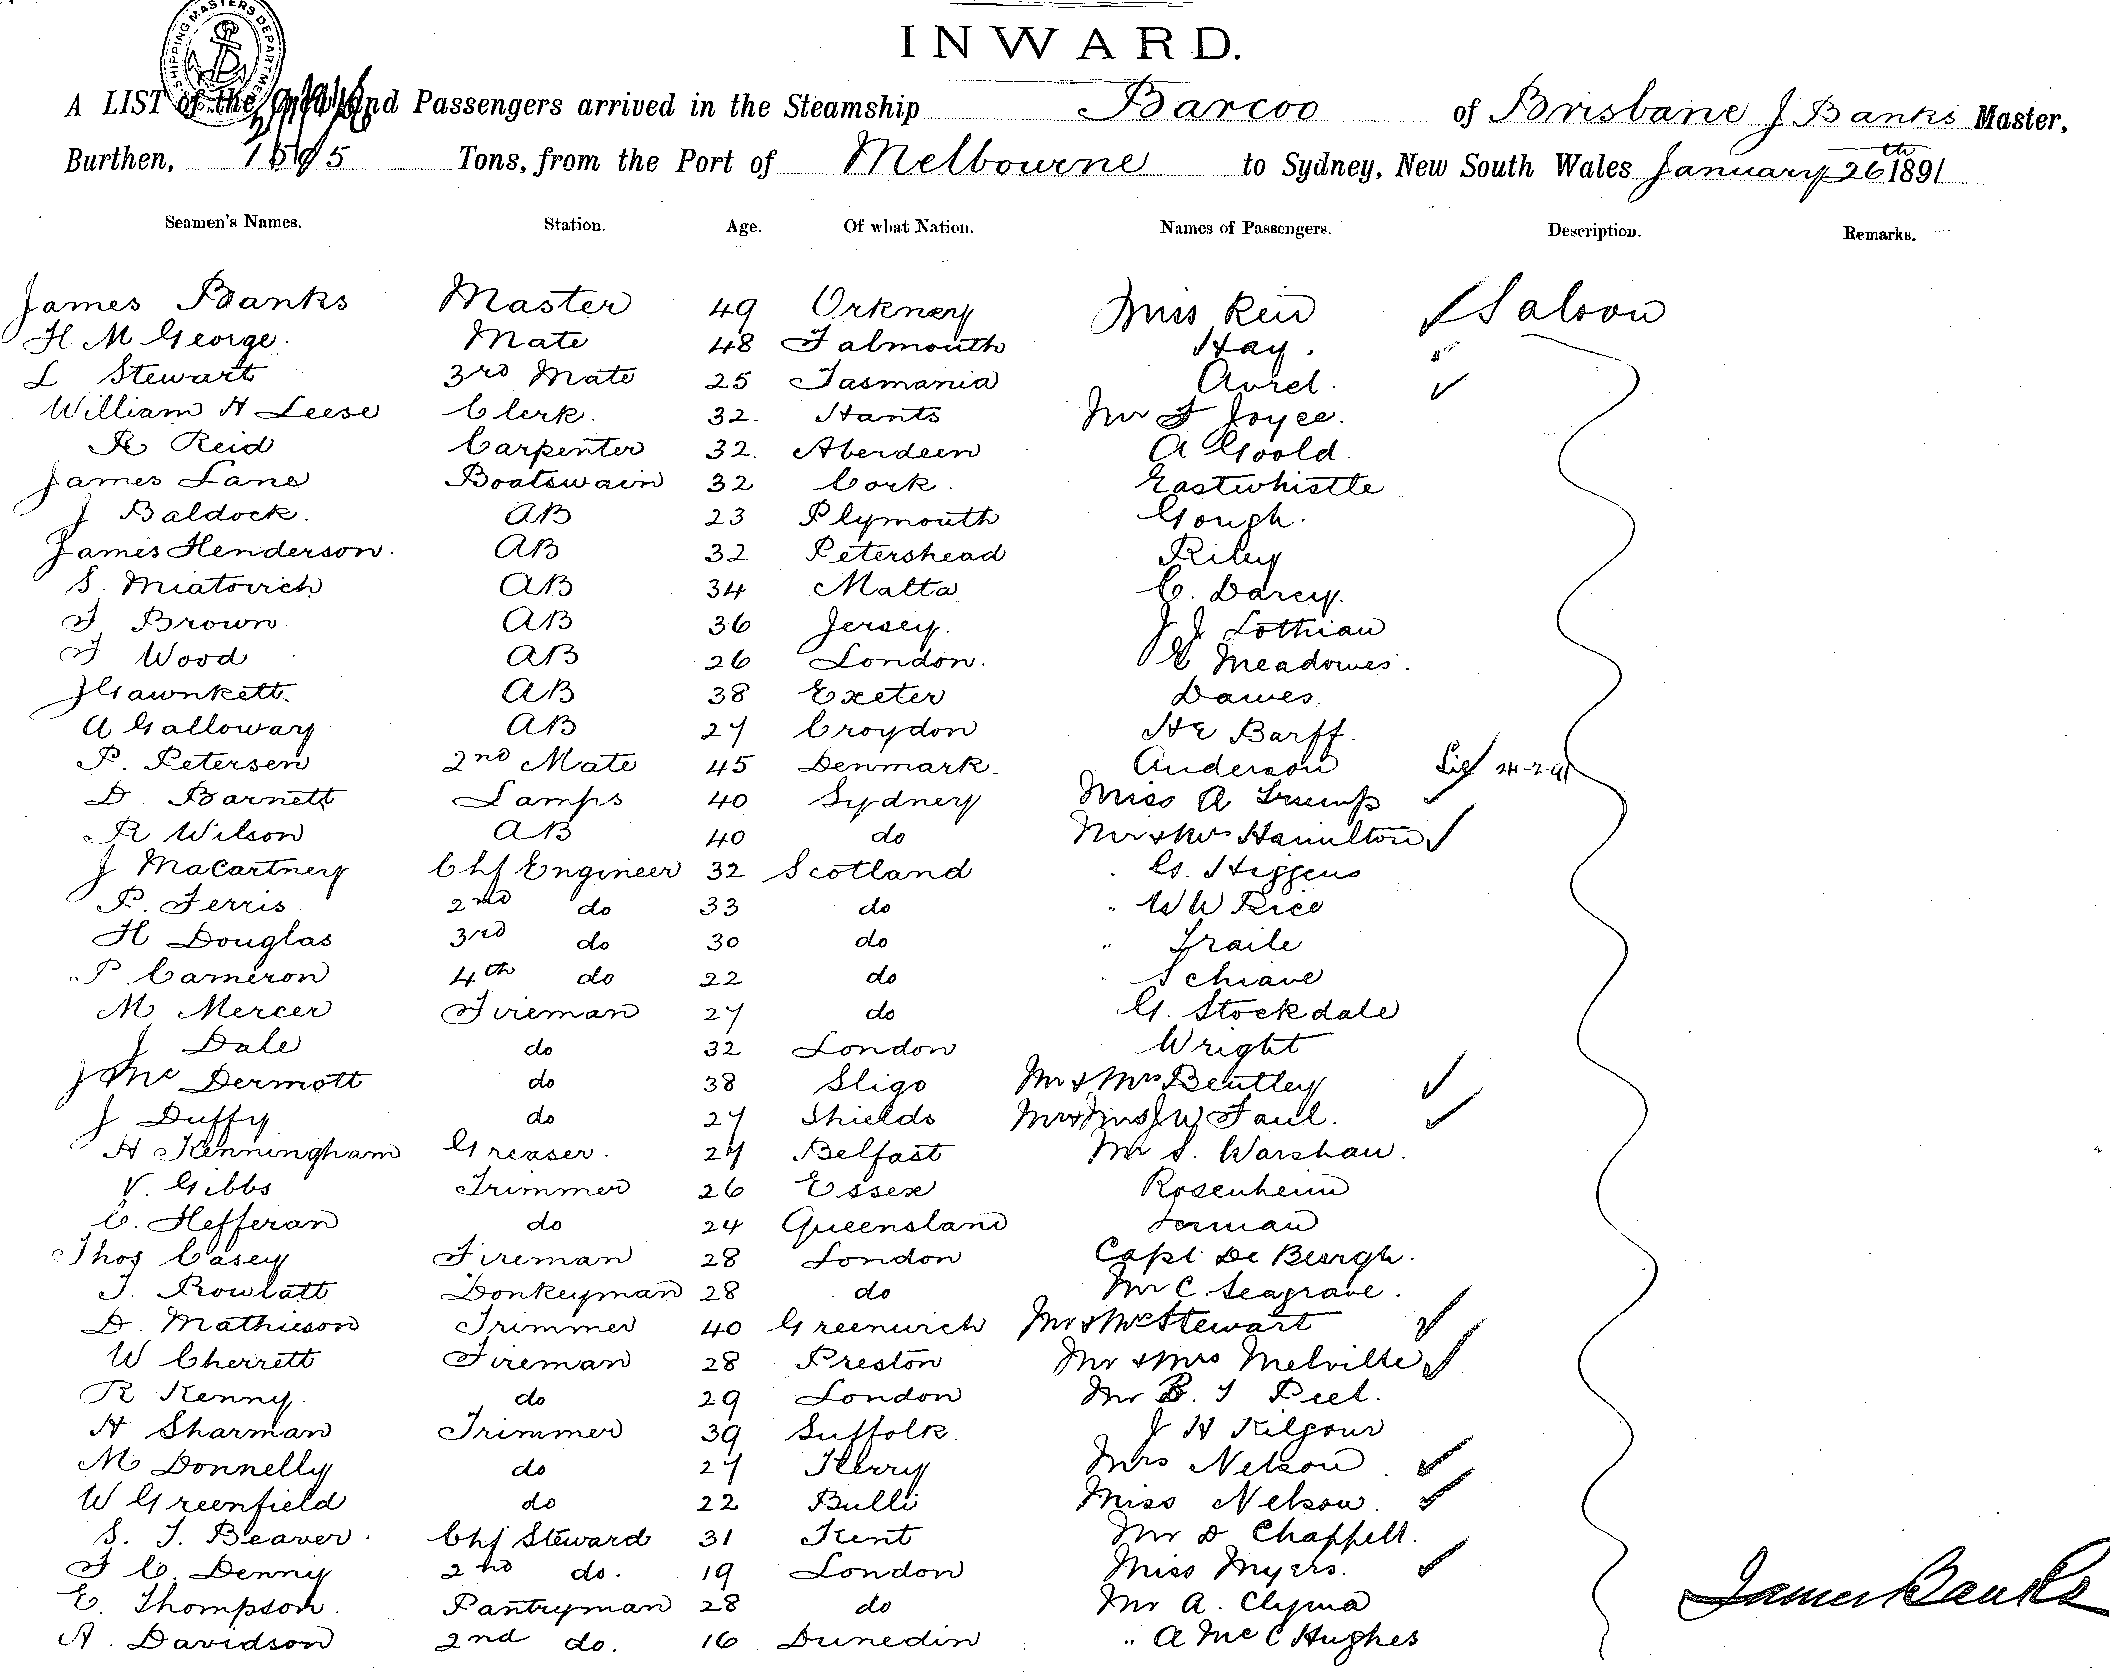 SHIPPING MASTERS DEPARTMENT
INWARD.
A LIST of the Crew and Passengers arrived in the Steamship Barcoo of Brisbane J Banks Master,
Burthen, 1505 Tons, from the Port of Melbourne to Sydney, New South Wales January 26th 1891
Seamen's Names. Station. Age. Of what Nation. Names of Passengers. Description. Remarks.
James Banks Master 49 Orkney Miss Reid Saloon
H M George Mate 48 Falmouth Hay.
L Stewart 3rd Mate 25 Tasmania Avrel.
William H Leese Clerk. 32. Hants Mr F Joyce.
R Reid Carpenter 32. Aberdeen A Goold
James Lane Boatswain 32 Cork. Eastwhistle
J Baldock. AB 23 Plymouth Gough.
James Henderson. AB 32 Petershead Riley
S. Miatovich AB 34 Malta C. Darcy.
F Brown AB 36 Jersey. J J Lothian
F Wood AB 26 London. E Meadowes.
J Gawnkett. AB 38 Exeter Dawes
A Galloway AB 27 Croydon He Barff.
P. Petersen 2nd Mate 45 Denmark. Anderson 24-2-91
D. Barnett Lamps 40 Sydney Miss A Trump
R Wilson AB 40 do Mr & Mrs Hamilton
J MaCartney Chf Engineer 32 Scotland G. Higgens
P. Ferris 2nd do 33 do " W W Rice
H Douglas 3rd do 30 do " Fraile
P Cameron 4th do 22 do " Schiave
M Mercer Fireman 27 do G. Stockdale
J Dale do 32 London Wright
J Mc Dermott do 38 Sligo Mr & Mrs Bentley
J Duffy do 27 Shields Mr & Mrs J W Faul.
H Kenningham Greaser. 27 Belfast Mr S. Warshaw.
V. Gibbs Trimmer 26 Essex Rosenheim
C. Hefferan do 24 Queensland Jerman
Thos Casey Fireman 28 London Capt De Burgh.
T. Rowlatt Donkeyman 28 do Mr C. Seagrave.
D. Mathieson Trimmer 40 Greenwich Mr & Mrs Stewart
W Cherrett Fireman 28 Preston Mr & Mrs Melville
R Kenny. do 29 London Mr B. T Peel.
H Sharman Trimmer 39 Suffolk. J H Kilgour
M Donnelly do 27 Kerry Mrs Nelson
W Greenfield do 22 Bulli Miss Nelson.
S. T. Beaver. Chf Steward 31 Kent Mr D Chappell.
F C. Denny 2nd do. 19 London Miss Myers.
E. Thompson. Pantryman 28 do Mr A. Clyma
A. Davidson 2nd do. 16 Dunedin " A McC Hughes
James Banks